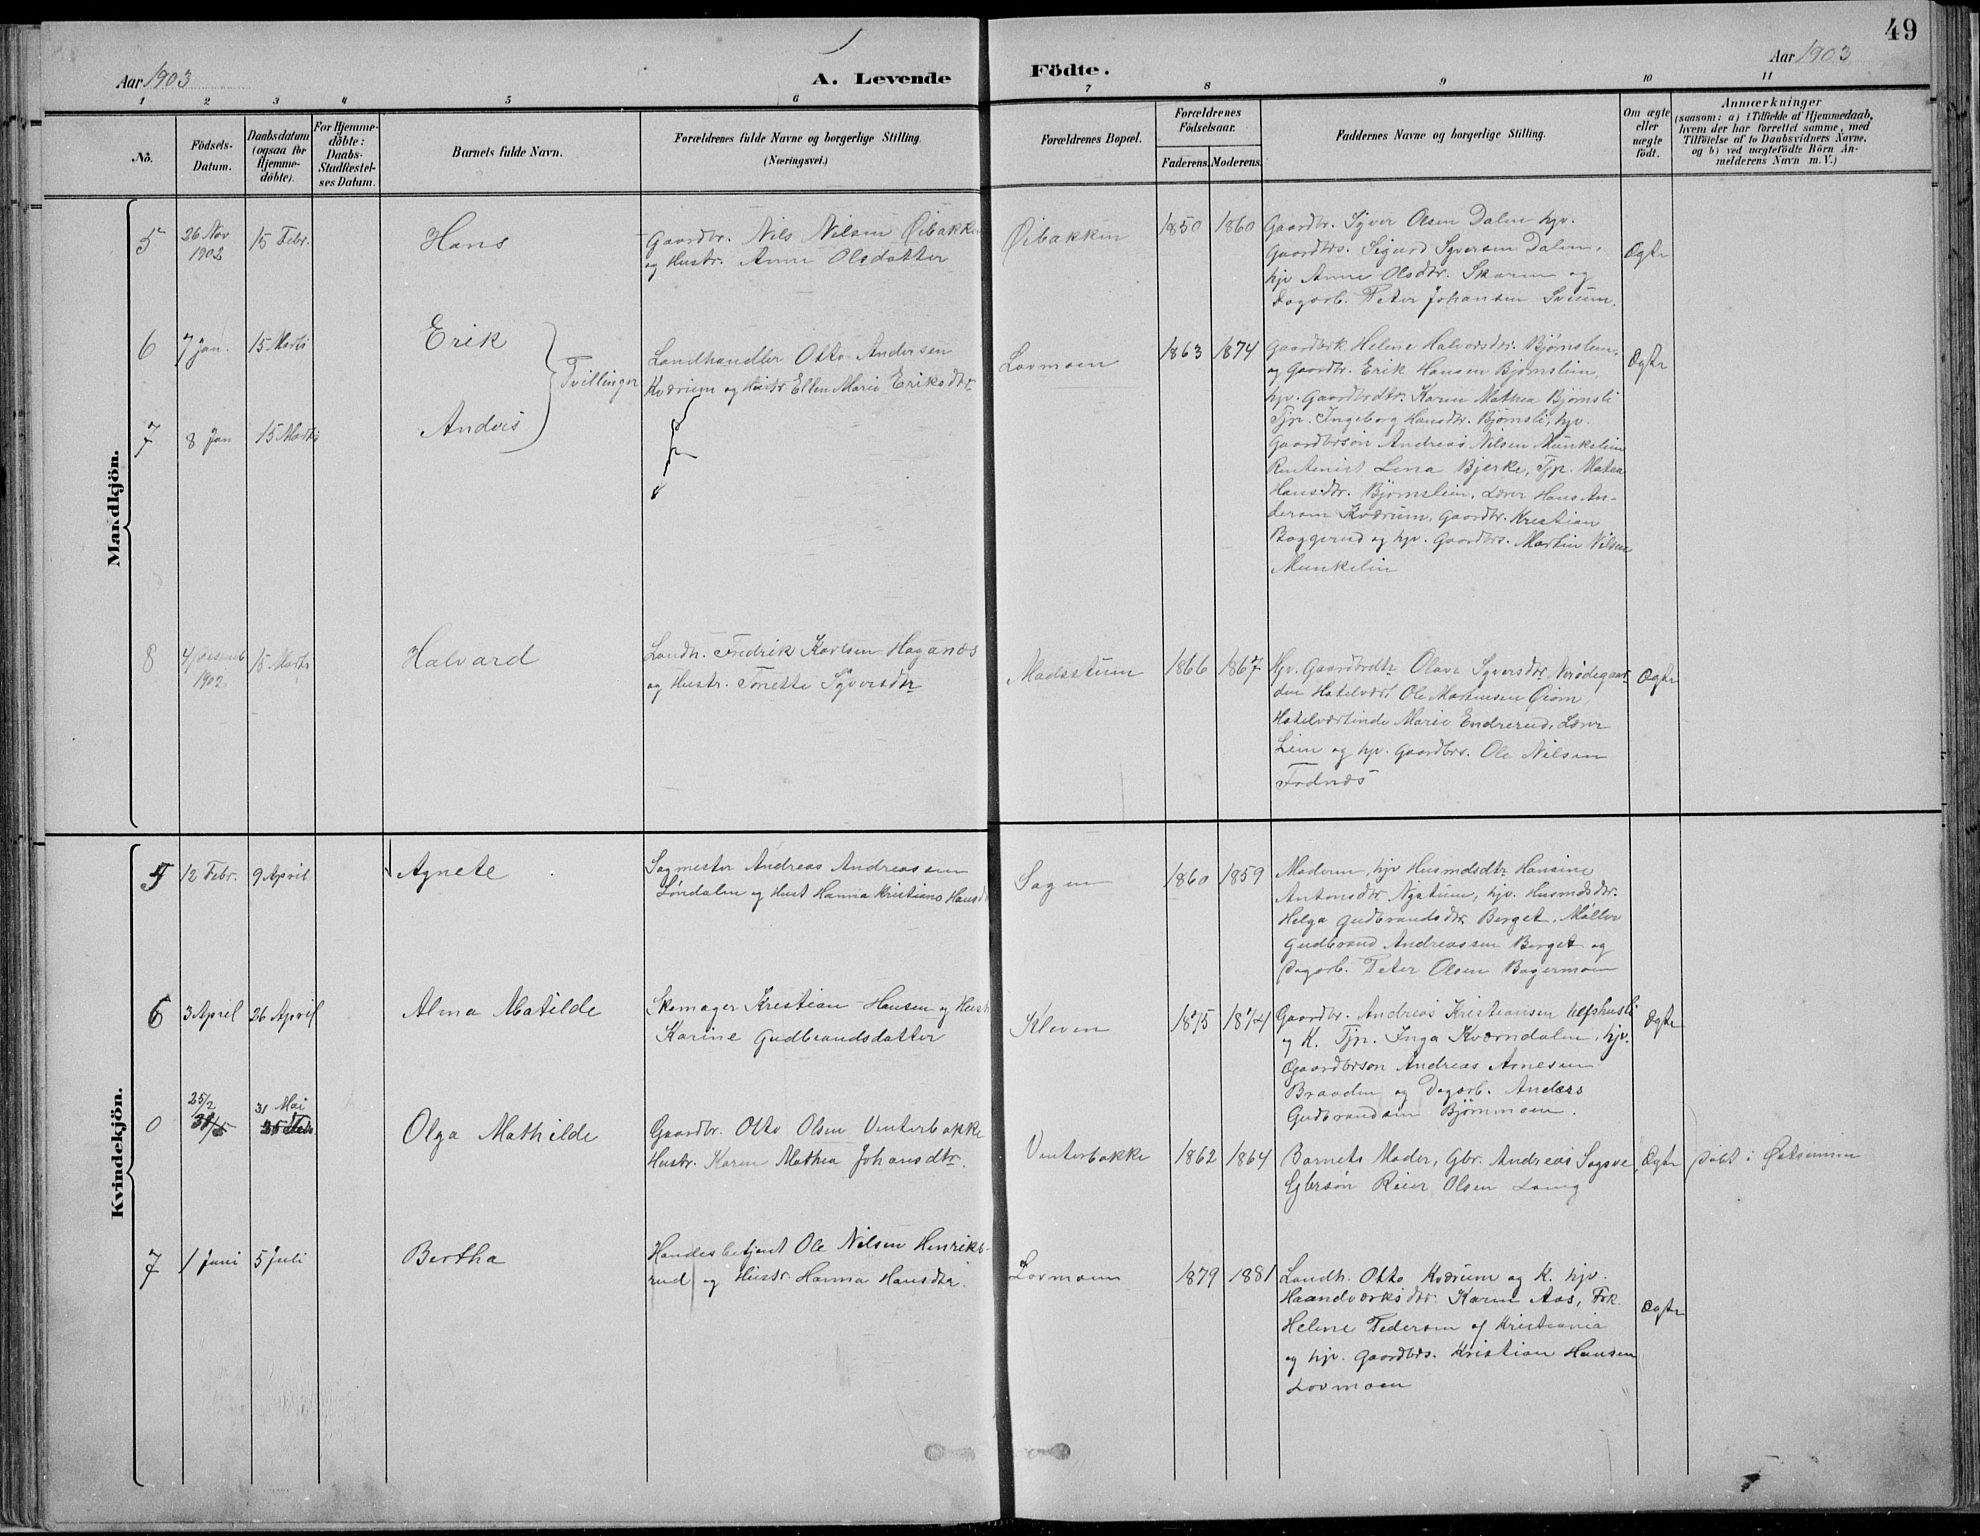 49
Aar 1903
A. Levende Födte.
Aar 1903
1 2 3 4 5 6 7 8 9 10 11
No.
Födsels-Datum.
Daabsdatum (ogsaa for Hjemme-döbte).
For Hjemme-döbte: Daabs-Stadfæstel-ses Datum.
Barnets fulde Navn.
Forældrenes fulde Navne og borgerlige Stilling.
(Næringsvei.)
Forældrenes Bopæl.
Forældrenes Födselsaar.
Faderens. Moderens.
Faddernes Navne og borgerlige Stilling.
Om ægte eller uægte födt.
Anmærkninger
(saasom: a) i Tilfælde af Hjemmedaab, hvem der har forrettet samme, med Tilföielse af to Daabsvidners Navne, og b) ved uægtefödte Börn An-melderens Navn m. V.)
Mandkjön.
5 26 Nov 1902 15 Febr. Hans
Gaardbr. Nils Nilsen Øibakken
og Hustr. Anne Olsdatter
Øibakken 1850 1860
Gaardbr. Syver Olsen Dalen hjv.
Gaardbrs. Sigurd Syversen Dalen,
hjv Anne Olsdtr. Skaren og
Dagarb. Peter Johansen Sveum.
Ægte
6 7 Jan. 15 Marts Erik
7 8 Jan 15 Marts Anders
Tvillinger
Landhandler Otto Andersen
Kværum og Hustr Ellen Marie Eriksdtr
Lovmoen 1863 1874
Gaardbrk. Helene Halvorsdtr. Bjørnslien,
og Gaardbr. Erik Hansen Bjørnslien,
hjv. Gaardbrdtr. Karen Mathea Bjørnsli
Tjp. Ingeborg Hansdtr. Bjørnsli, hjv.
Gaardbrsön Andreas Nilsen Munkelien
Rentenist Lina Bjerke, Tjp. Matea
Hansdtr. Bjørnslien, Lærer Hans An-
dersen Kværum, Gaardbr. Kristian
Baggerud og hjv. Gaardbrs. Martin Nilsen
Munkelin
Ægte
8 4 Desemb 1902 15 Marts Halvard
Landh. Fredrik Karlsen Haganæs
og Hustr. Tonette Syversdtr
Madsstuen 1866 1867
Hjv. Gaardbrdtr Olava Syversdtr Nerødegaar-
den Hotelvært Ole Martinsen Øiom
Hotelværtinde Marie Endrerud, Lærer
Lien og hjv. Gaardbrs. Ole Nilsen
Fodnæs
Ægte
Kvindekjön.
5 12 Febr. 9 April Agnete
Sagmester Andreas Andreassen
Søndalen og Hust Hanna Kristiane Hansd
Sagen 1860 1859
Moderen, hjv Husmdsdtr Hansine
Antonsdtr Nystuen, hjv. Husmdsdtr.
Helga Gudbrandsdtr Berget, Møller
Gudbrand Andreassen Berget og
Dagarb. Peter Olsen Bagermoen
6 3 April 26 April Alma Matilde
Skomager Kristian Hansen og Hustr
Karine Gudbrandsdatter
Kleven 1875 1874
Gaardbr. Andreas Kristiansen Ulfshusli
og K. Tjp. Inga Kværndalen, hjv.
Gaardbrsøn Andreas Arnesen
Braaden og Dagarb. Anders
Gudbrandsen Bjørnmoen.
Ægte
0 25/2 31 Mai Olga Mathilde
Gaardbr. Otto Olsen Vinterbakke
Hustr. Karen Mathea Johansdtr.
Vinterbakke 1862 1864
Barnets Moder, Gbr. Andreas Sagsve
Gbrsön Reier Olsen
Ægte
Døbt i
7 1 Juni 5 Juli Bertha
Handelsbetjent Ole Nilsen Henriks-
rud og Hustr. Hanna Hansdtr.
Lovmoen 1879 1881
Landh. Otto Kværum og K. hjv.
Haandverksdtr. Karen Aas, Frk.
Helene Pedersen af Kristiania
og hjv. Gaardbrs. Kristian Hansen
Lovmoen
Ægte